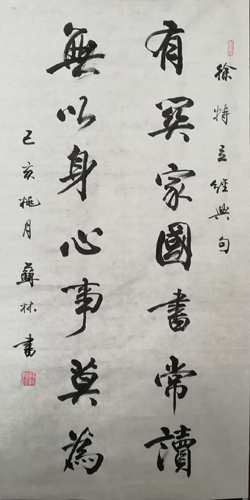 徐特立經典句
有關家國書常讀
無以身心事莫為
己亥桃月蘇林書